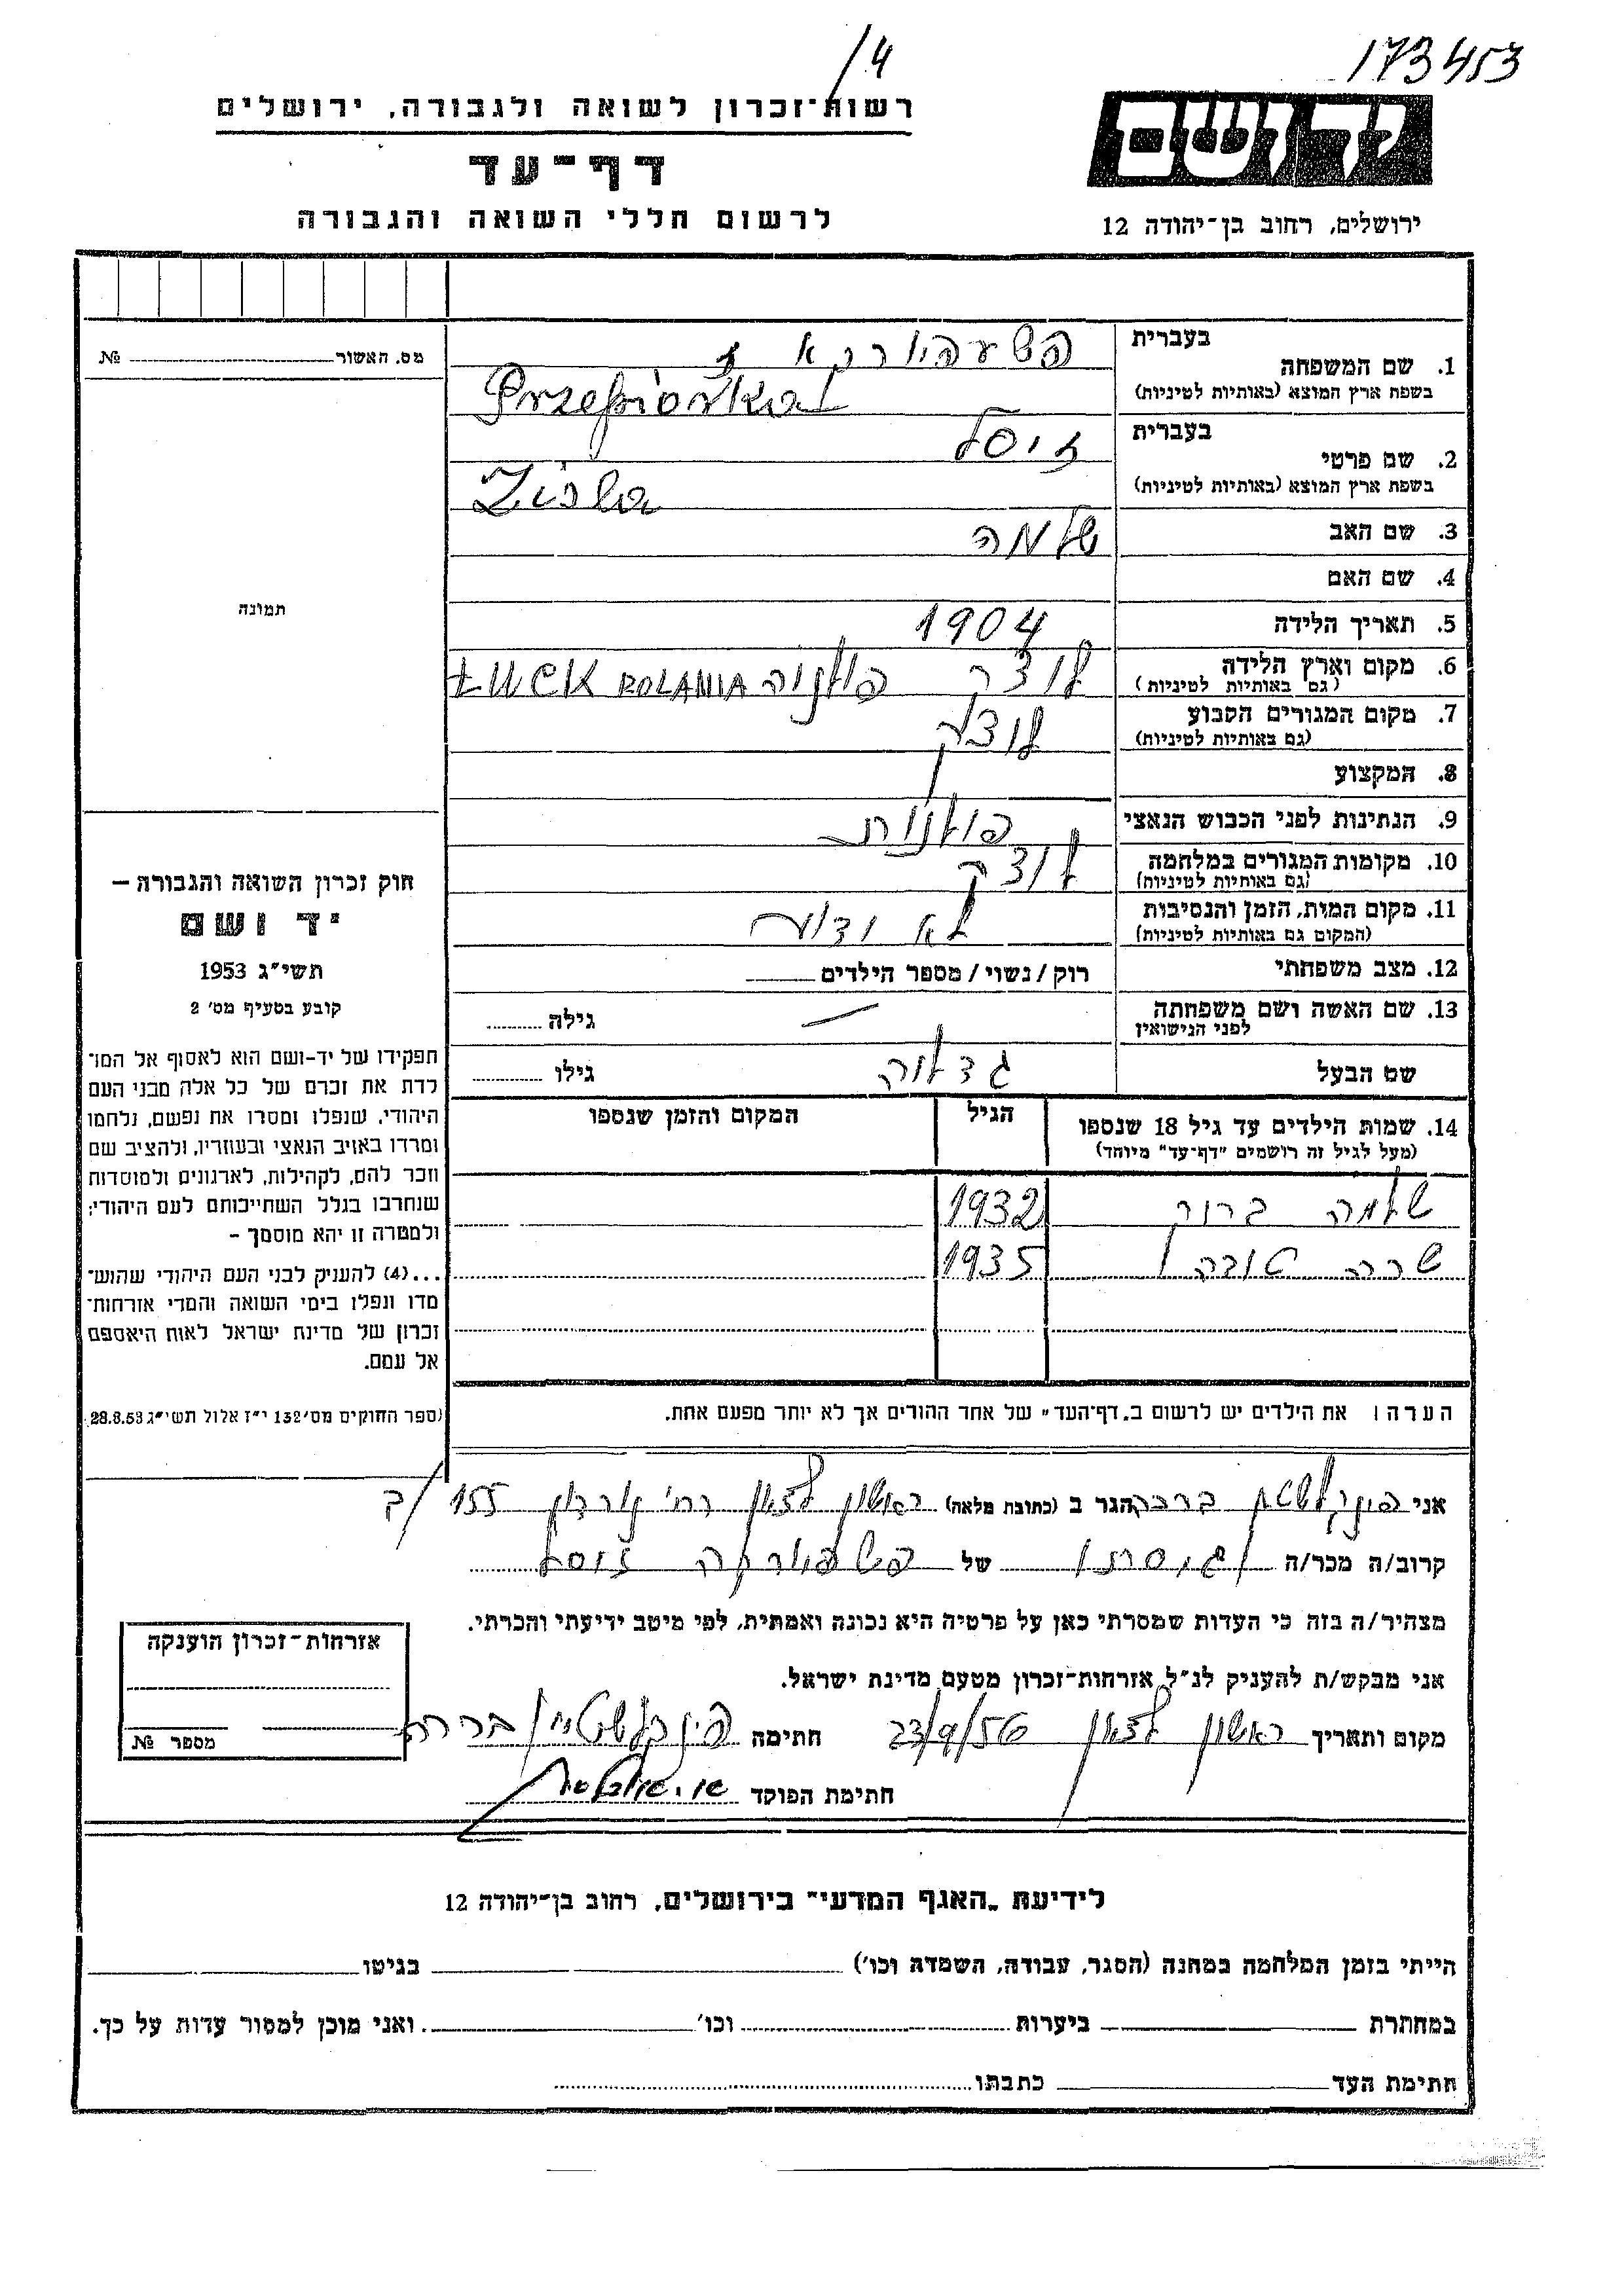 173453
/4
ידושם
ירושלים, רחוב בן־יהודה 12
רשות־זכרון לשואה ולגבורה, ירושלים
דף־עד
לרשום חללי השואה והגבורה
מס. האשור № 
תמונה
1. שם המשפחה
בעברית
בשפת ארץ המוצא (באותיות לטיניות)
Przepiórka
2. שם פרטי
בעברית זיסל
בשפת ארץ המוצא (באותיות לטיניות) Zisla
3. שם האב שלמה
4. שם האם
5. תאריך הלידה 1904
6. מקום וארץ הלידה לוצק פולניה ŁUCK POLANIA
(גם באותיות לטיניות)
7. מקום המגורים הקבוע לוצק
(גם באותיות לטיניות)
8. המקצוע
9. הנתינות לפני הכבוש הנאצי פולנית
10. מקומות המגורים במלחמה לוצק
(גם באותיות לטיניות)
11. מקום המות, הזמן והנסיבות לא ידוע
(המקום גם באותיות לטיניות)
12. מצב משפחתי רוק/נשוי/מספר הילדים
13. שם האשה ושם משפחתה גילה
לפני הנישואין
שם הבעל גדליה גילו
14. שמות הילדים עד גיל 18 שנספו הגיל המקום והזמן שנספו
(מעל לגיל זה רושמים "דף־עד" מיוחד)
שלמה ברוך 1932
שרה טובה 1935
הערה: את הילדים יש לרשום ב„דף־העד" של אחד ההורים אך לא יותר מפעם אחת.
חוק זכרון השואה והגבורה –
יד ושם
תשי"ג 1953
קובע בסעיף מס' 2
תפקידו של יד-ושם הוא לאסוף אל המו־
לדת את זכרם של כל אלה מבני העם
היהודי, שנפלו ומסרו את נפשם, נלחמו
ומרדו באויב הנאצי ובעוזריו, ולהציב שם
וזכר להם, לקהילות, לארגונים ולמוסדות
שנחרבו בגלל השתייכותם לעם היהודי;
ולמטרה זו יהא מוסמך –
...(4) להעניק לבני העם היהודי שהוש־
מדו ונפלו בימי השואה והמרי אזרחות־
זכרון של מדינת ישראל לאות היאספם
אל עמם.
(ספר החוקים מס' 132 י"ז אלול תשי"ג 28.8.53
אני פינקלשטין ברכה הגר ב (כתובת מלאה) ראשון לציון רח' 155/ב
קרוב/ה מכר/ה גיסתו של זיסל
מצהיר/ה בזה כי העדות שמסרתי כאן על פרטיה היא נכונה ואמתית, לפי מיטב ידיעתי והכרתי.
אני מבקש/ת להעניק לנ"ל אזרחות־זכרון מטעם מדינת ישראל.
מקום ותאריך ראשון לציון 23/9/56 חתימה פינקלשטיין ברכה
חתימת הפוקד
אזרחות־זכרון הוענקה
מספר №
לידיעת „האגף המדעי" בירושלים, רחוב בן־יהודה 12
הייתי בזמן המלחמה במחנה (הסגר, עבודה, השמדה וכו') בגיטו
במחתרת ביערות וכו' ואני מוכן למסור עדות על כך.
חתימת העד כתבתו